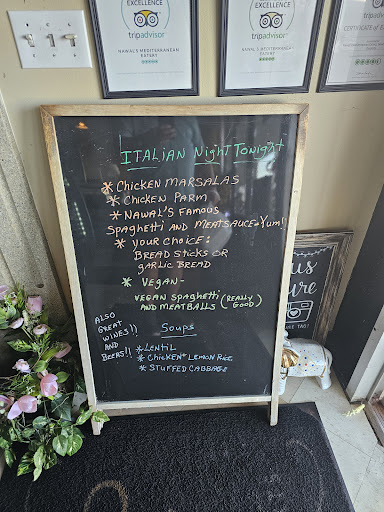 EXCELLENCE
tripadvisor
NAWAL'S MEDITERRANEAN
EATERY
EXCELLENCE
tripadvisor
NAWAL'S MEDITERRANEAN
EATERY
tripadvisor
CERTIFICATE of
ITALIAN Night Tonight
* CHICKEN MARSALAS
* CHICKEN PARM
* NAWAL'S FAMOUS
Spaghetti AND MEATSAUCE-Yum!
* your CHOICE:
BREAD STICKS OR
GARLIC BREAD
* VEGAN-
VEGAN SPAGHETTI (REALLY
AND MEATBALLS GOOD)
ALSO
GREAT
WINES!!
AND
BEERS!!
Soups
* LENTIL
* CHICKEN* LEMON RICE
* STUFFED CABBAGE
us